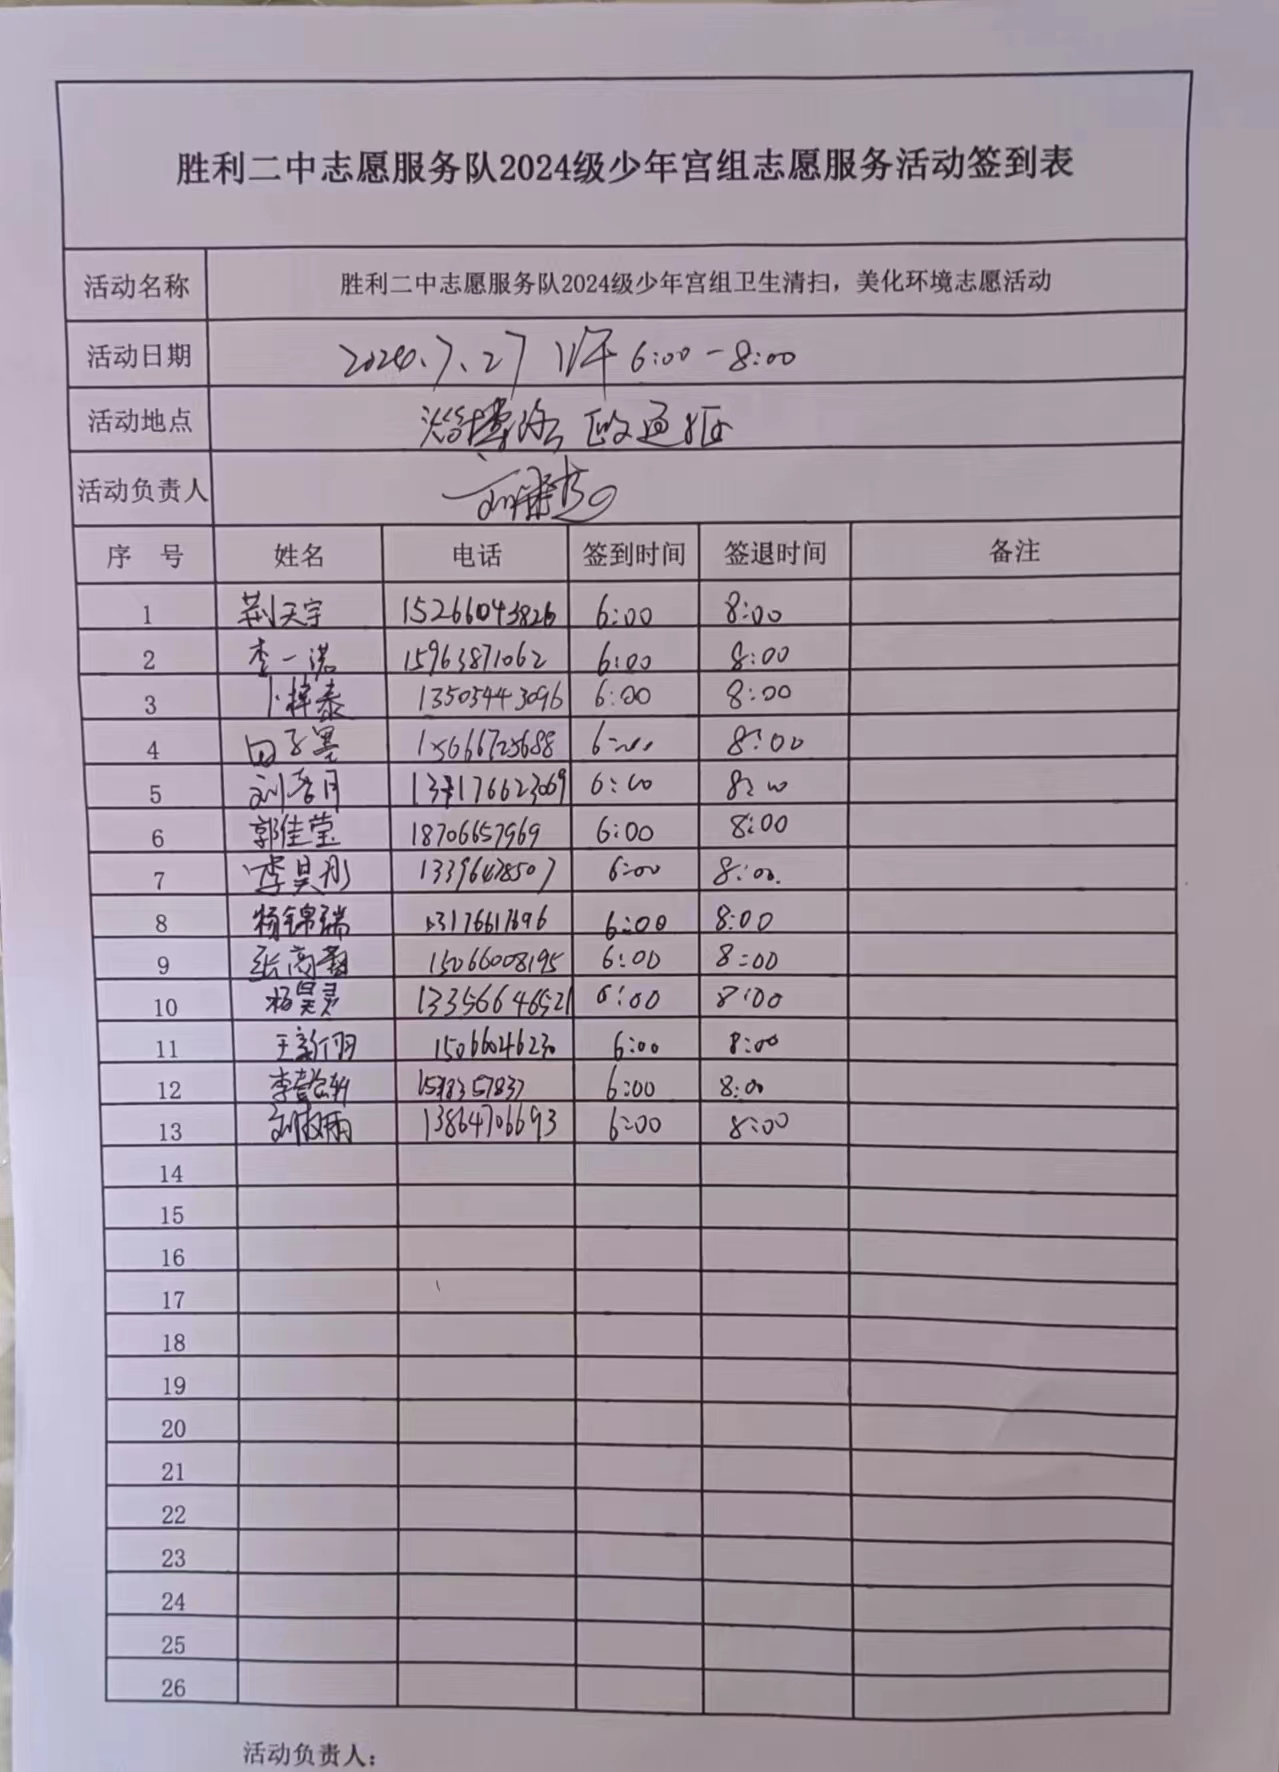 胜利二中志愿服务队2024级少年宫组志愿服务活动签到表
活动名称 胜利二中志愿服务队2024级少年宫组卫生清扫，美化环境志愿活动
活动日期 2024.7.27 下午 6:00-8:00
活动地点 淄博路 政通街
活动负责人
序 号 姓名 电话 签到时间 签退时间 备注
1 荆天宇 15266043826 6:00 8:00
2 李一诺 15963871062 6:00 8:00
3 卜梓泰 13505443096 6:00 8:00
4 田子墨 15066725688 6:00 8:00
5 刘 月 6:00 8:00
6 郭佳莹 18706657969 6:00 8:00
7 李昊彤 13396428507 6:00 8:00.
8 杨锦瑞 13176617696 6:00 8:00
9 张高 15066008195 6:00 8:00
10 杨昊灵 13356646521 6:00 8:00
11 王新 15066046230 6:00 8:00
12 李 轩 6:00 8:00
13 刘 雨 13864706693 6:00 8:00
14
15
16
17
18
19
20
21
22
23
24
25
26
活动负责人：